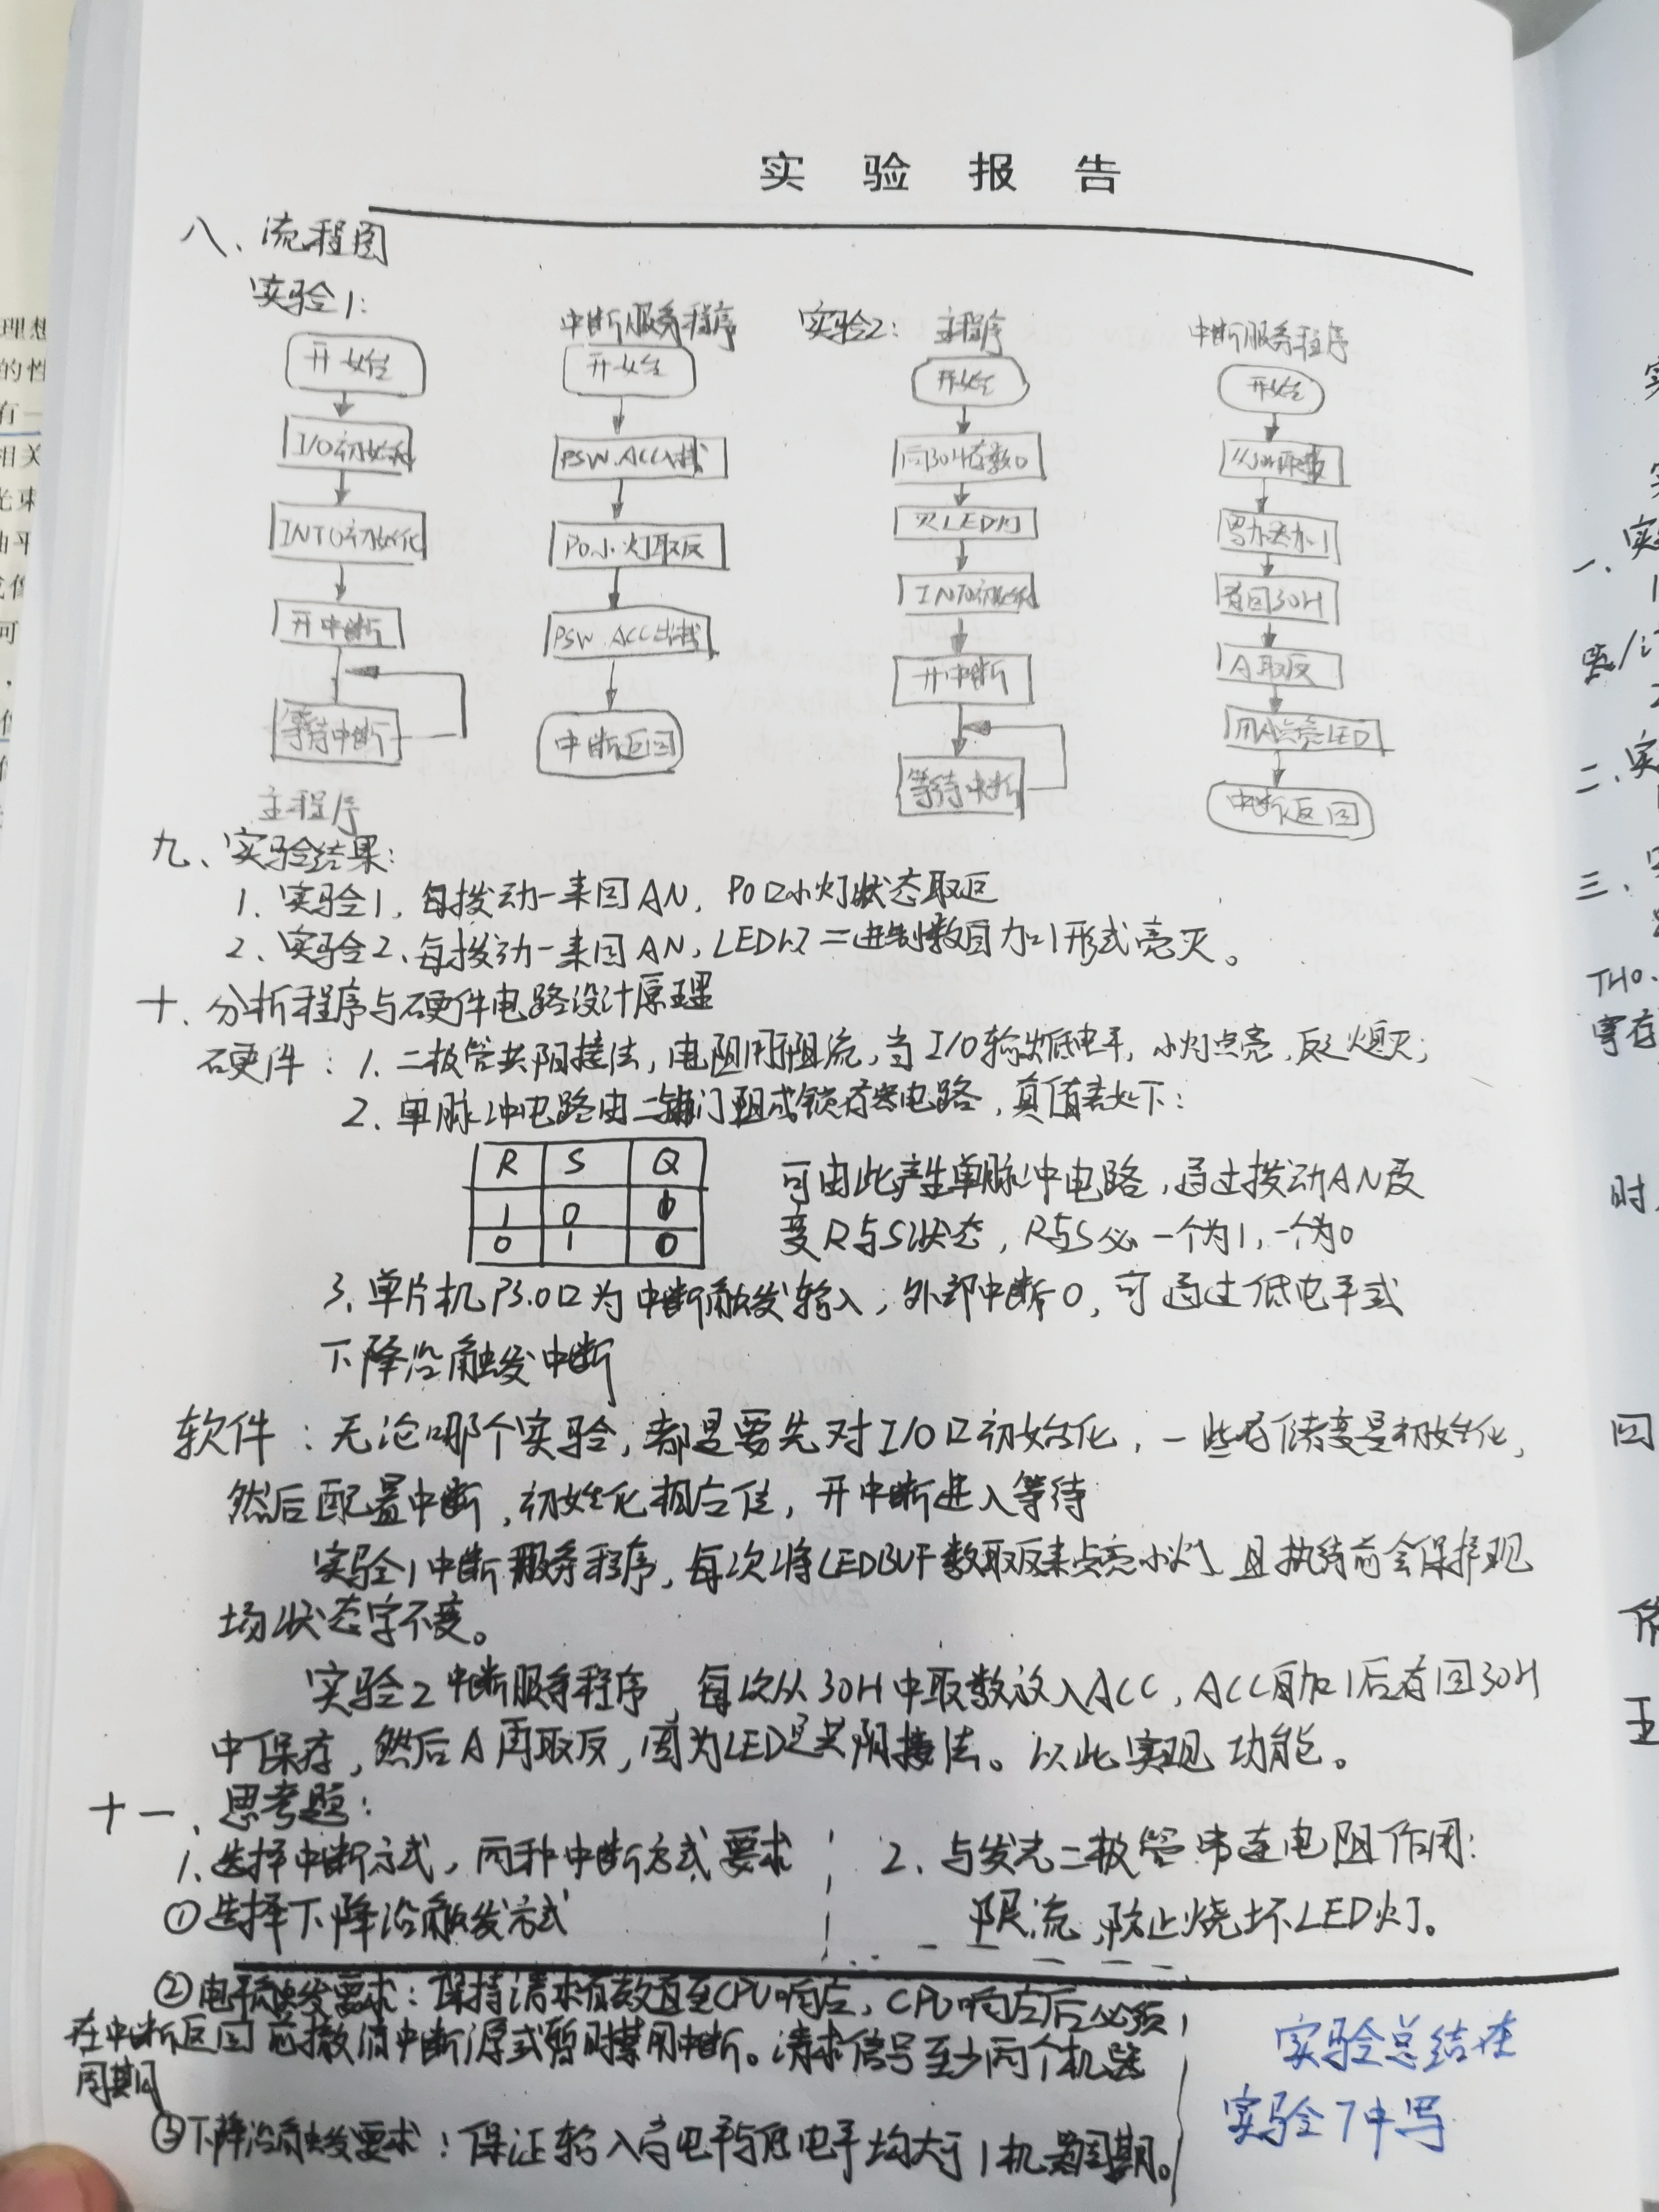 实验报告
八、流程图
实验1:
开始
I/O初始化
INT0初始化
开中断
等待中断
主程序
中断服务程序
开始
PSW.ACC入栈
P0小灯取反
PSW.ACC出栈
中断返回
实验2: 主程序
开始
向30H存数0
灭LED灯
INT0初始化
开中断
等待中断
中断服务程序
开始
从30H取数
累加器加1
存回30H
A取反
用A点亮LED
中断返回
九、实验结果:
1. 实验1,每拨动一来回AN,P0口小灯状态取反
2. 实验2、每拨动一来回AN,LED以二进制数目加1形式亮灭。
十、分析程序与硬件电路设计原理
硬件:1. 二极管共阳接法,电阻用于阻流,当I/O输出低电平,小灯点亮,反之熄灭;
2. 单脉冲电路由二辅门组成锁存器电路,真值表如下:
R S Q
1 0
0 1 0
可由此产生单脉冲电路,通过拨动AN改
变R与S状态,R与S必一个为1,一个为0
3. 单片机P3.0口为中断触发输入,外部中断0,可通过低电平或
下降沿触发中断
软件:无论哪个实验,都是要先对I/O口初始化,一些存储变量初始化,
然后配置中断,初始化相应位,开中断进入等待
实验1中断服务程序,每次将LEDBUF数取反来点亮小灯,且执行前会保护现
场状态字不变。
实验2中断服务程序,每次从30H中取数放入ACC,ACC自加1后存回30H
中保存,然后A再取反,因为LED是共阳接法。以此实现功能。
十一、思考题:
1. 选择中断方式,两种中断方式要求
①选择下降沿触发方式
2、与发光二极管串连电阻作用:
限流,防止烧坏LED灯。
②电平触发要求:保持请求有效直至CPU响应,CPU响应后必须
在中断返回前撤消中断源或暂时禁用中断。请求信号至少两个机器
周期
③下降沿触发要求:保证输入高电平与低电平均大于1机器周期。
实验总结在
实验7中写